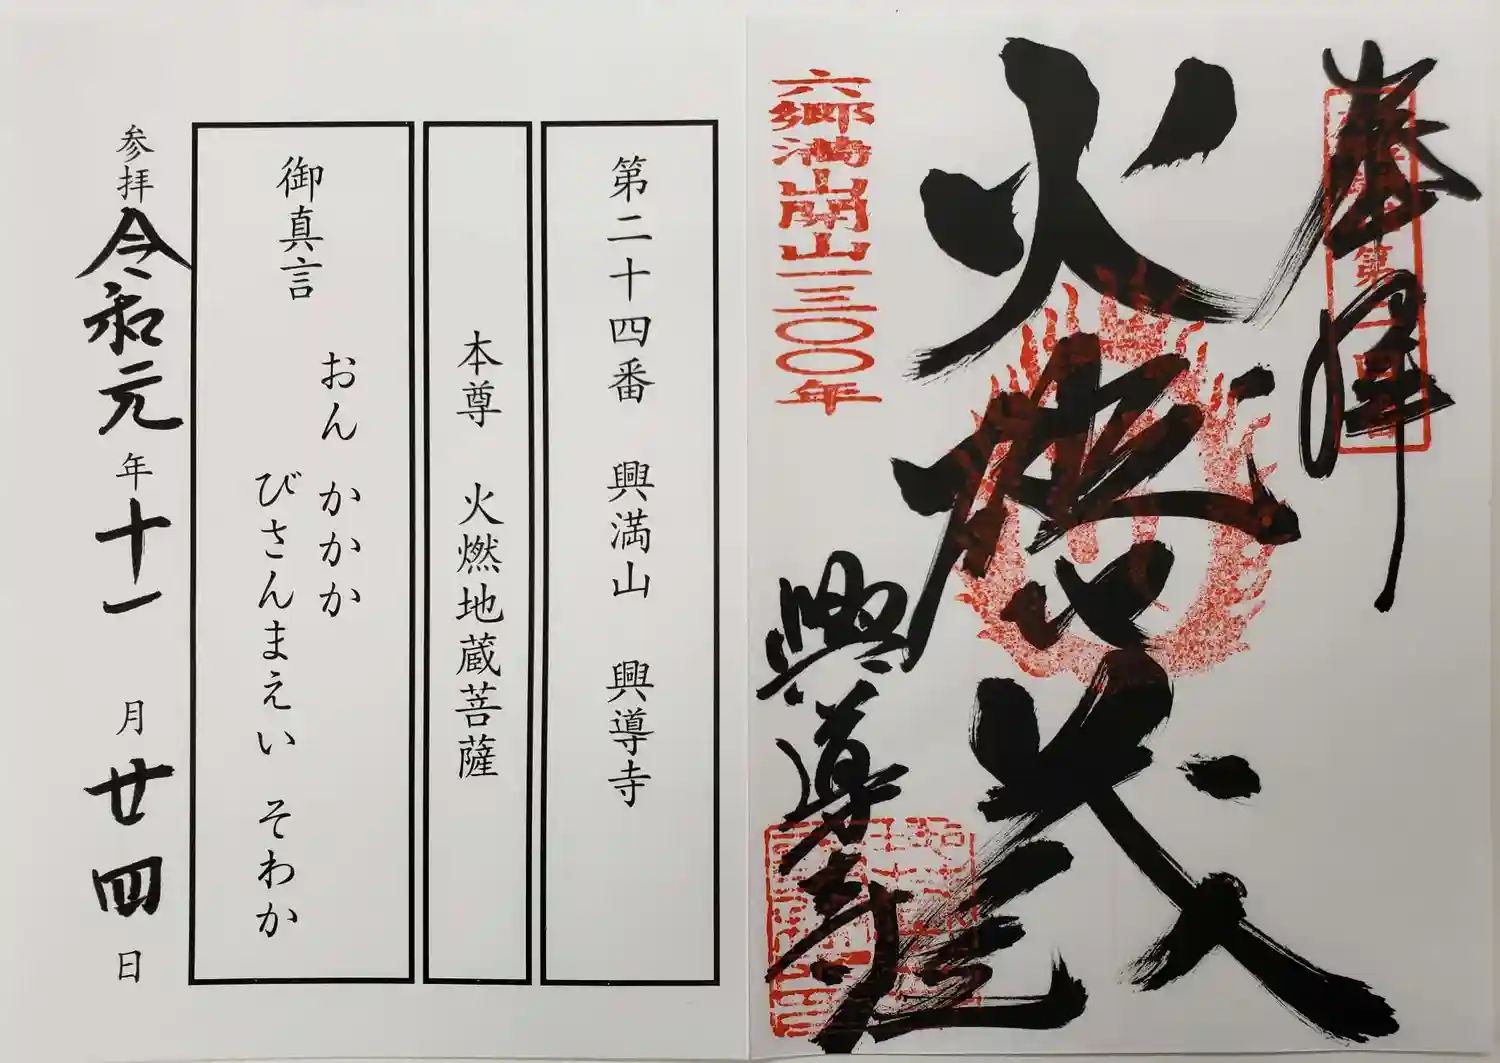 奉拝
第二十四番
火燃地蔵
興導寺
六郷満山開山一三〇〇年
第二十四番 興満山 興導寺
本尊 火燃地蔵菩薩
御真言
おん かかか
びさんまえい そわか
参拝 令和元年十一月廿四日